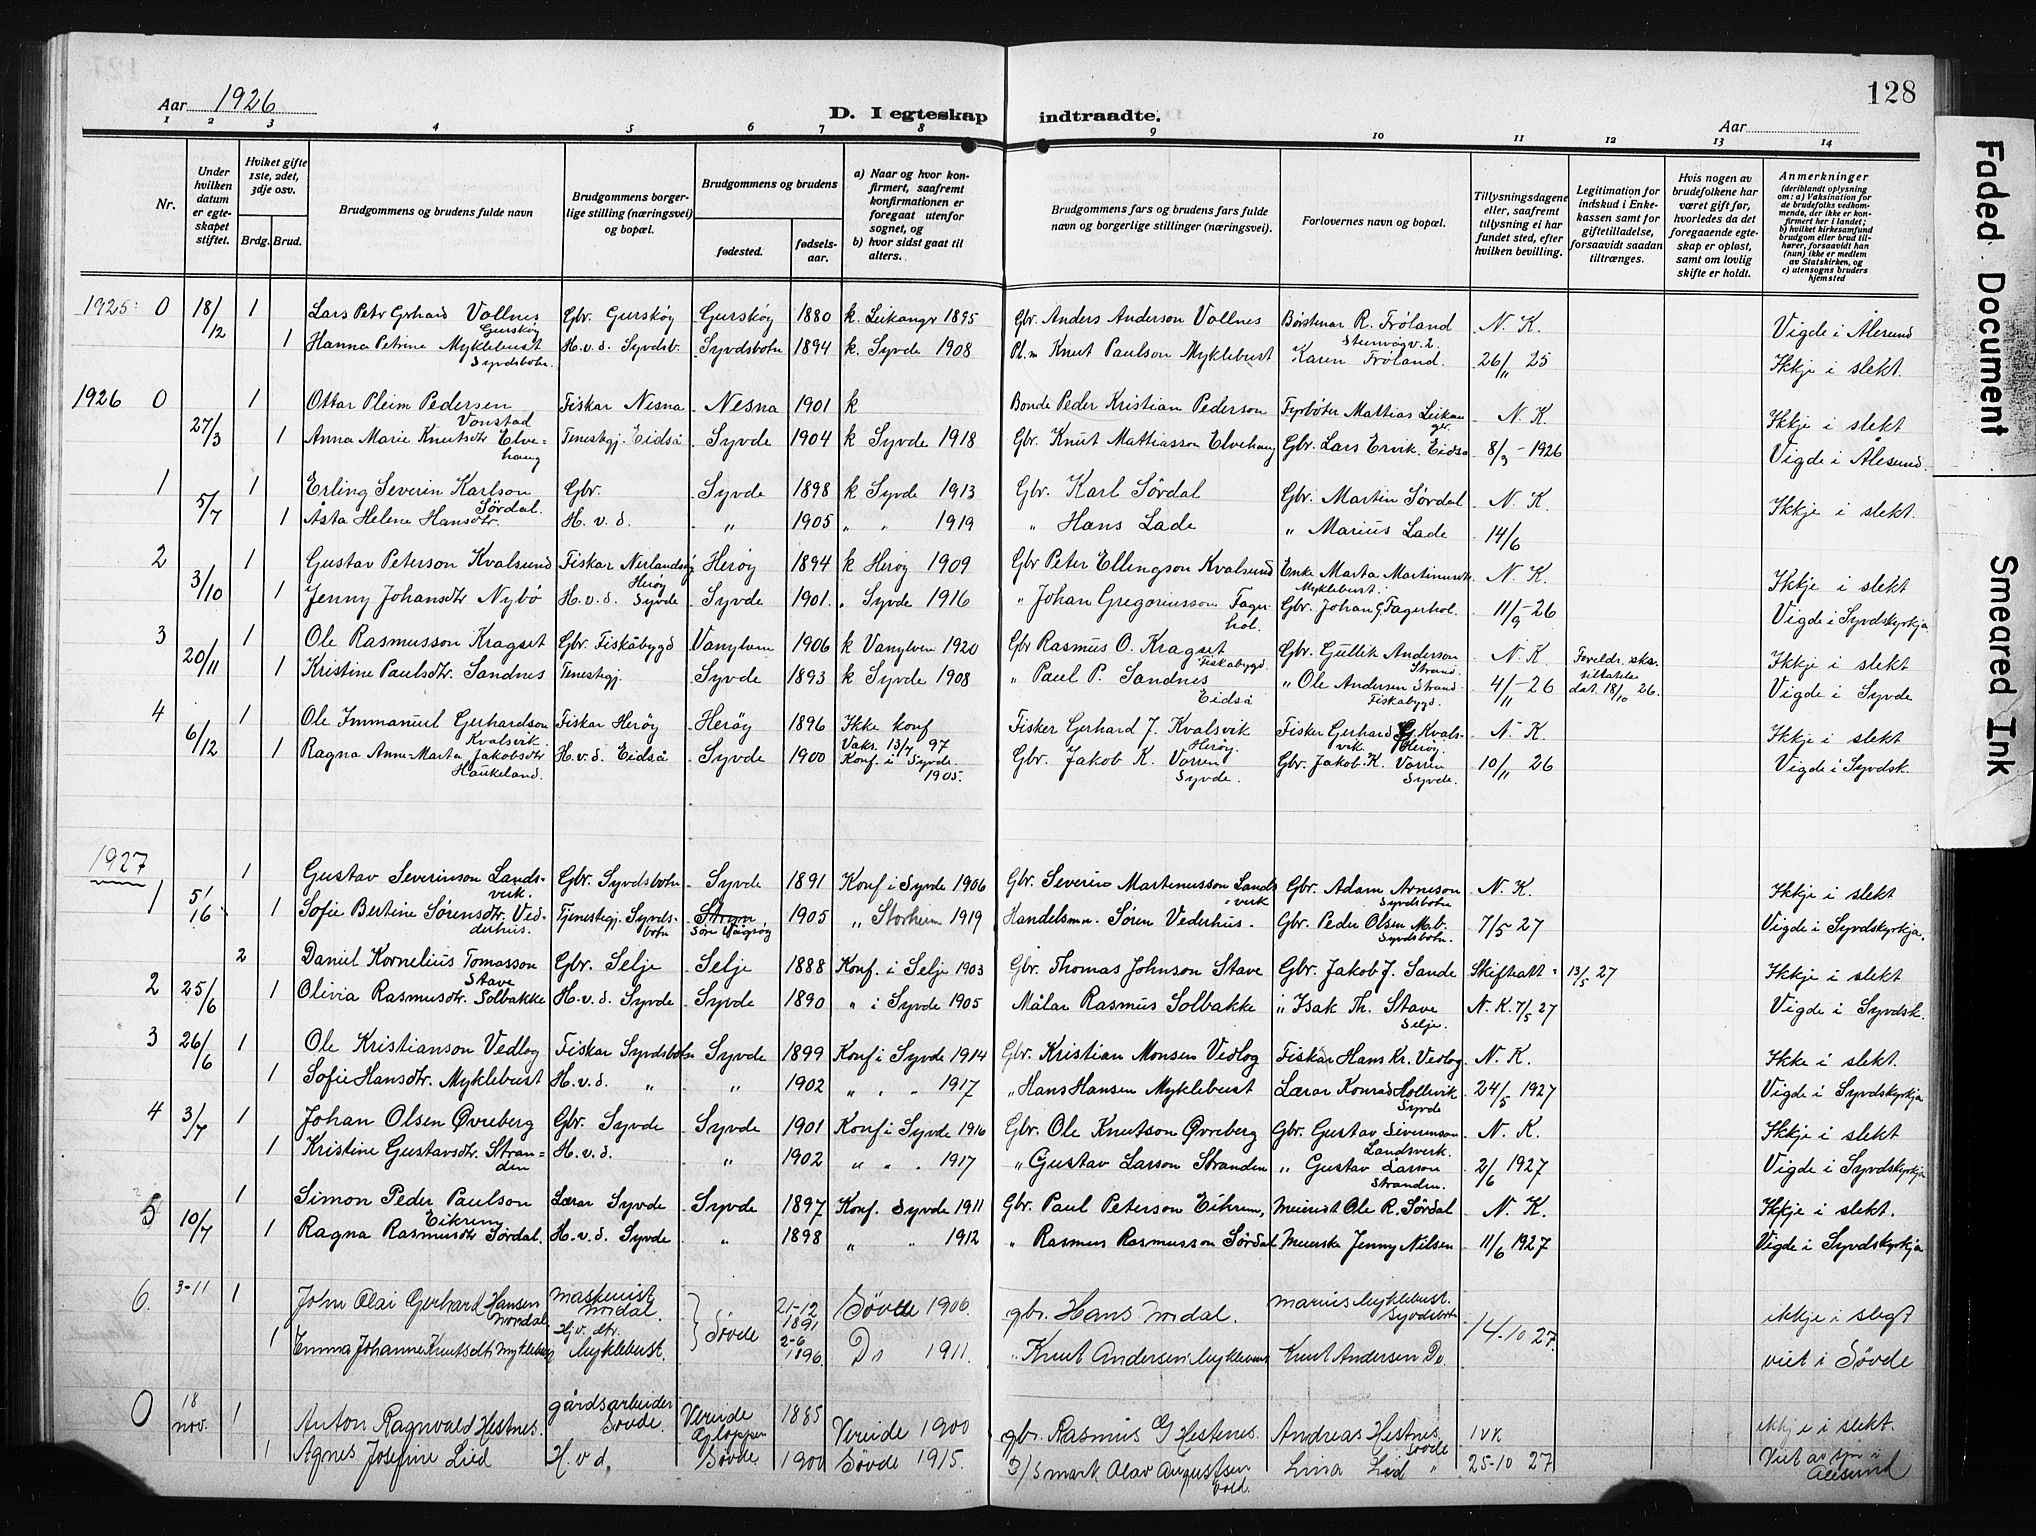 128
Aar 1926
D. I egteskap indtraadte.
Aar
1 2 3 4 5 6 7 8 9 10 11 12 13 14
Nr.
Under hvilken datum er egte-skapet stiftet.
Hviket gifte 1ste, 2det, 3dje osv.
Brdg. Brud.
Brudgommens og brudens fulde navn
Brudgommens borger-lige stilling (næringsvei) og bopæl.
Brudgommens og brudens
fødested.
fødsels-aar.
a) Naar og hvor kon-firmert, saafremt konfirmationen er foregaat utenfor sognet, og b) hvor sidst gaat til alters.
Brudgommens fars og brudens fars fulde navn og borgerlige stillinger (næringsvei).
Forlovernes navn og bopæl.
Tillysningsdagene eller, saafremt tillysning ei har fundet sted, efter hvilken bevilling.
Legitimation for indskud i Enke-kassen samt for giftetilladelse, forsaavidt saadan tiltrænges.
Hvis nogen av brudefolkene har været gift før, hvorledes da det foregaaende egte-skap er opløst, samt om lovlig skifte er holdt.
Anmerkninger (deriblandt oplysning om: a) Vaksination for de brudefolks vedkom-mende, der ikke er kon-firmert her i landet; b) hvilket kirkesamfund brudgom eller brud til-hører, forsaavidt han (hun) ikke er medlem av Statskirken, og c) utensogns bruders hjemsted
1925: 0 18/12 1 Lars Petr Gerhard Vollnes Gurskøy Gbr. Gurskøy Gurskøy 1880 k. Leikangr 1895 Gbr. Anders Anderson Vollnes Børstmar R. Frøland N. K. Vigde i Ålesund
1 Hanna Petrine Myklebust Syvdsbotn. H.v.d. Syvdsb. Syvdsbotn 1894 k. Syvde 1908 Pl.m Knut Paulson Myklebust Karen Frøland. 26/11 25 Ikkje i slekt.
1926 0 27/3 1 Ottar Pleim Pedersen Vonstad Fiskar Nesna Nesna 1901 k Bonde Peder Kristian Pederson Fyrbøter Mattias Leikanger. N. K. Ikkje i slekt
1 Anna Marie Knutsdtr Elve=haug Tenestegj. Eidså Syvde 1904 k Syvde 1918 Gbr. Knut Mattiasson Elvehaug Gbr. Lars Ervik. Eidså 8/3 - 1926 Vigde i Ålesund.
1 5/7 1 Erling Severin Karlson Sørdal. Gbr. Syvde 1898 k Syvde 1913 Gbr. Karl Sørdal Gbr. Martin Sørdal N. K. Ikkje i slekt.
1 Åsta Helene Hansdtr. H. v. d. " 1905 " " 1919 " Hans Lade " Marius Lade 14/6
2 3/10 1 Gustav Peterson Kvalsund Fiskar Nerlandsøy Herøy Herøy 1894 k Herøy 1909 Gbr Peter Ellingson Kvalsund Enke Marta Martinusdtr Myklebust. N. K. Ikkje i slekt
1 Jenny Johansdtr Nybø H.v.d. Syvde Syvde 1901. " Syvde 1916 " Johan Gregoriusson Fagerhol. Gbr. Johan G. Fagerhol. 11/9 - 26 Vigde i Syvdskyrkja
3 20/11 1 Ole Rasmusson Kragset Gbr. Fiskåbygd Vanylven 1906 k Vanylven 1920 Gbr Rasmus O. Kragset Fiskabygd. Gbr. Gullik Anderson Strand N. K. Ikkje i slekt
1 Kristine Paulsdtr. Sandnes Tenestegj. Syvde 1893 k Syvde 1908 " Paul P. Sandnes Eidså " Ole Andersen Strand Fiskabygd. 4/11 - 26 dat. 18/10 26. Vigde i Syvde
4 6/12 1 Ole Immanuel Gerhardson Kvalsvik. Fiskar Herøy Herøy 1896 Ikke konf Vaks. 13/7 97 Fisker Gerhard J. Kvalsvik Herøy. Fisker Gerhard Kvalsvik Herøy. N. K. Ikkje i slekt
1 Ragna Anne-Marta Jakobsdtr Haukeland. H.v.d. Eidså Syvde 1900 Konf. i Syvde. 1905. Gbr. Jakob K. Vorren Syvde. Gbr. Jakob K. Vorren Syvde. 10/11 26 Vigde i Syvdsk.
1927
1 5/16 1 Gustav Severinson Landsverk. Gbr. Syvdsbotn Syvde 1891 Konf i Syvde 1906 Gbr. Severin Martenusson Landsverk Gbr. Adam Arneson Syvdsbotn N. K. Ikkje i slekt
1 Sofie Bertine Sørensdtr. Vedderhus. Tjenestegj. Syvdsbotn Stryn Sør Vågsøy 1905 " Storheim 1919 Handelsmn. Søren Vederhus. Gbr. Peder Olsen Mrb. Syvdsbotn. 7/5 27 Vigde i Syvdskyrkja.
2 25/6 2 Daniel Kornelius Tomasson Stave Gbr. Selje Selje 1888 Konf. i Selje 1903 Gbr. Thomas Johnson Stave Gbr. Jakob J. Sande Skifteatt 13/5 27 Ikkje i slekt
1 Olivia Rasmusdtr. Solbakke H.v.d. Syvde Syvde 1890 " i Syvde 1905 Målar Rasmus Solbakke " Isak Th. Stave Selje. N. K. 7/5 27 Vigde i Syvdsk.
3 26/6 1 Ole Kristianson Vedlog Fiskar Syvdsbotn Syvde 1899 Konf i Syvde 1914 Gbr. Kristian Monsen Vedlog Fiskar Hans Kr. Vedlog. N. K. Ikke i slekt.
1 Sofie Hansdtr. Myklebust H.v.d. " " 1902 " " " 1917 " Hans Hansen Myklebust Lærar Konrad Hollevik Syvde 24/5 1927 Vigde i Syvdskyrkja
4 3/7 1 Johan Olsen Øvreberg Gbr. Syvde Syvde 1901 Konf i Syvde 1916 Gbr. Ole Knutson Øvreberg Gbr. Gustav Severenson Landsverk. N. K. Ikkje i slekt
1 Kristine Gustavsdtr. Stranden H.v.d. " 1902 " " " 1917 " Gustav Larson Stranden " Gustav Larson Stranden. 2/6 1927 Vigde i Syvdskyrkja
5 10/7 1 Simon Peder Paulson Eikrem Lærar Syvde Syvde 1897 Konf. Syvde 1911 Gbr. Paul Peterson Eikrem, Meierist Ole R. Sørdal N. K. Ikkje i slekt.
1 Ragna Rasmusdtr Sørdal. H.v.d. Syvde " 1898 " " 1912 " Rasmus Rasmusson Sørdal Meierske Jenny Nilsen 11/6 1927 Vigde i Syvdskyrkja
6. 3-11 1 John Olai Gerhard Hansen Nordal maskenist Nordal. Søvde 21-12 1891 Søvde 1906. gbr. Hans Nordal. Marius Myklebust. Syvdsbotn 14-10 27. ikkje i slegt
1 Emma Johanne Knutsdtr Myklebust Hjv. dtr. Myklebust. 2-6 1896. Do 1911. " Knut Andersen Myklebust Knut Andersen Do viet i Søvde
0 18 nov. 1 Anton Ragnvald Hestnes. gårdsarbeider Søvde. Vereide Gloppen 1885 Vereide 1900 gbr. Rasmus G Hestenes. Andreas Hestnes Søvde ikkje i slekt.
1 Agnes Josefine Lied H. v d. Søvde 1900 Søvde 1915. Olav Augustsen Lina Lid " 25-10 27 Viet av i Ålesund
Faded Document Smeared Ink